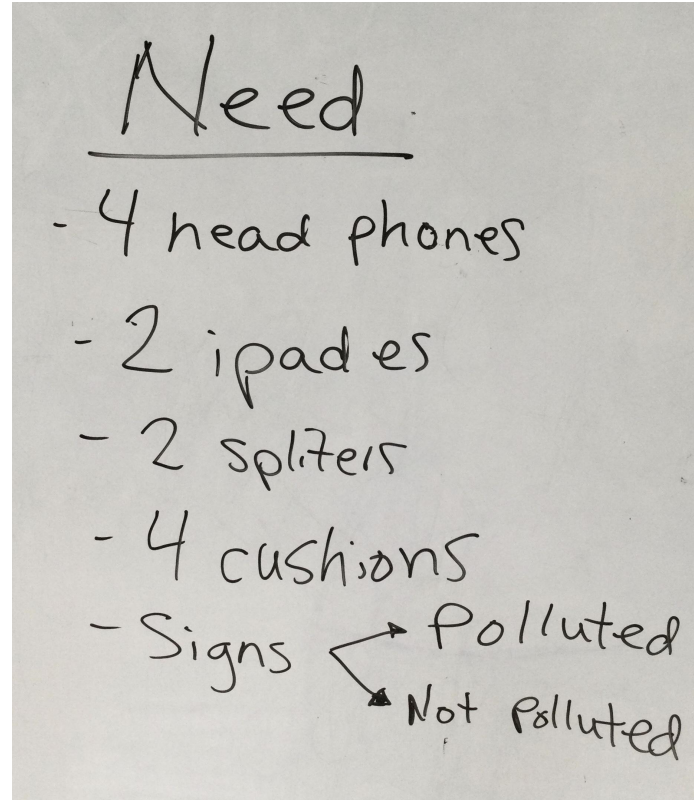 Need
- 4 head phones
- 2 ipades
- 2 spliters
- 4 cushions
- Signs
Polluted
Not Polluted